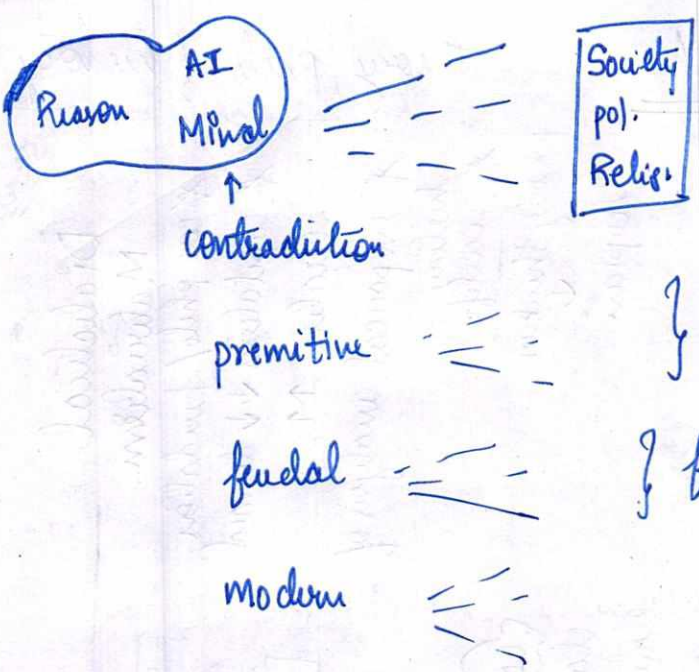 AI
Reason Mind
Society
pol.
Relig.
contradiction
premitive
feudal
modern